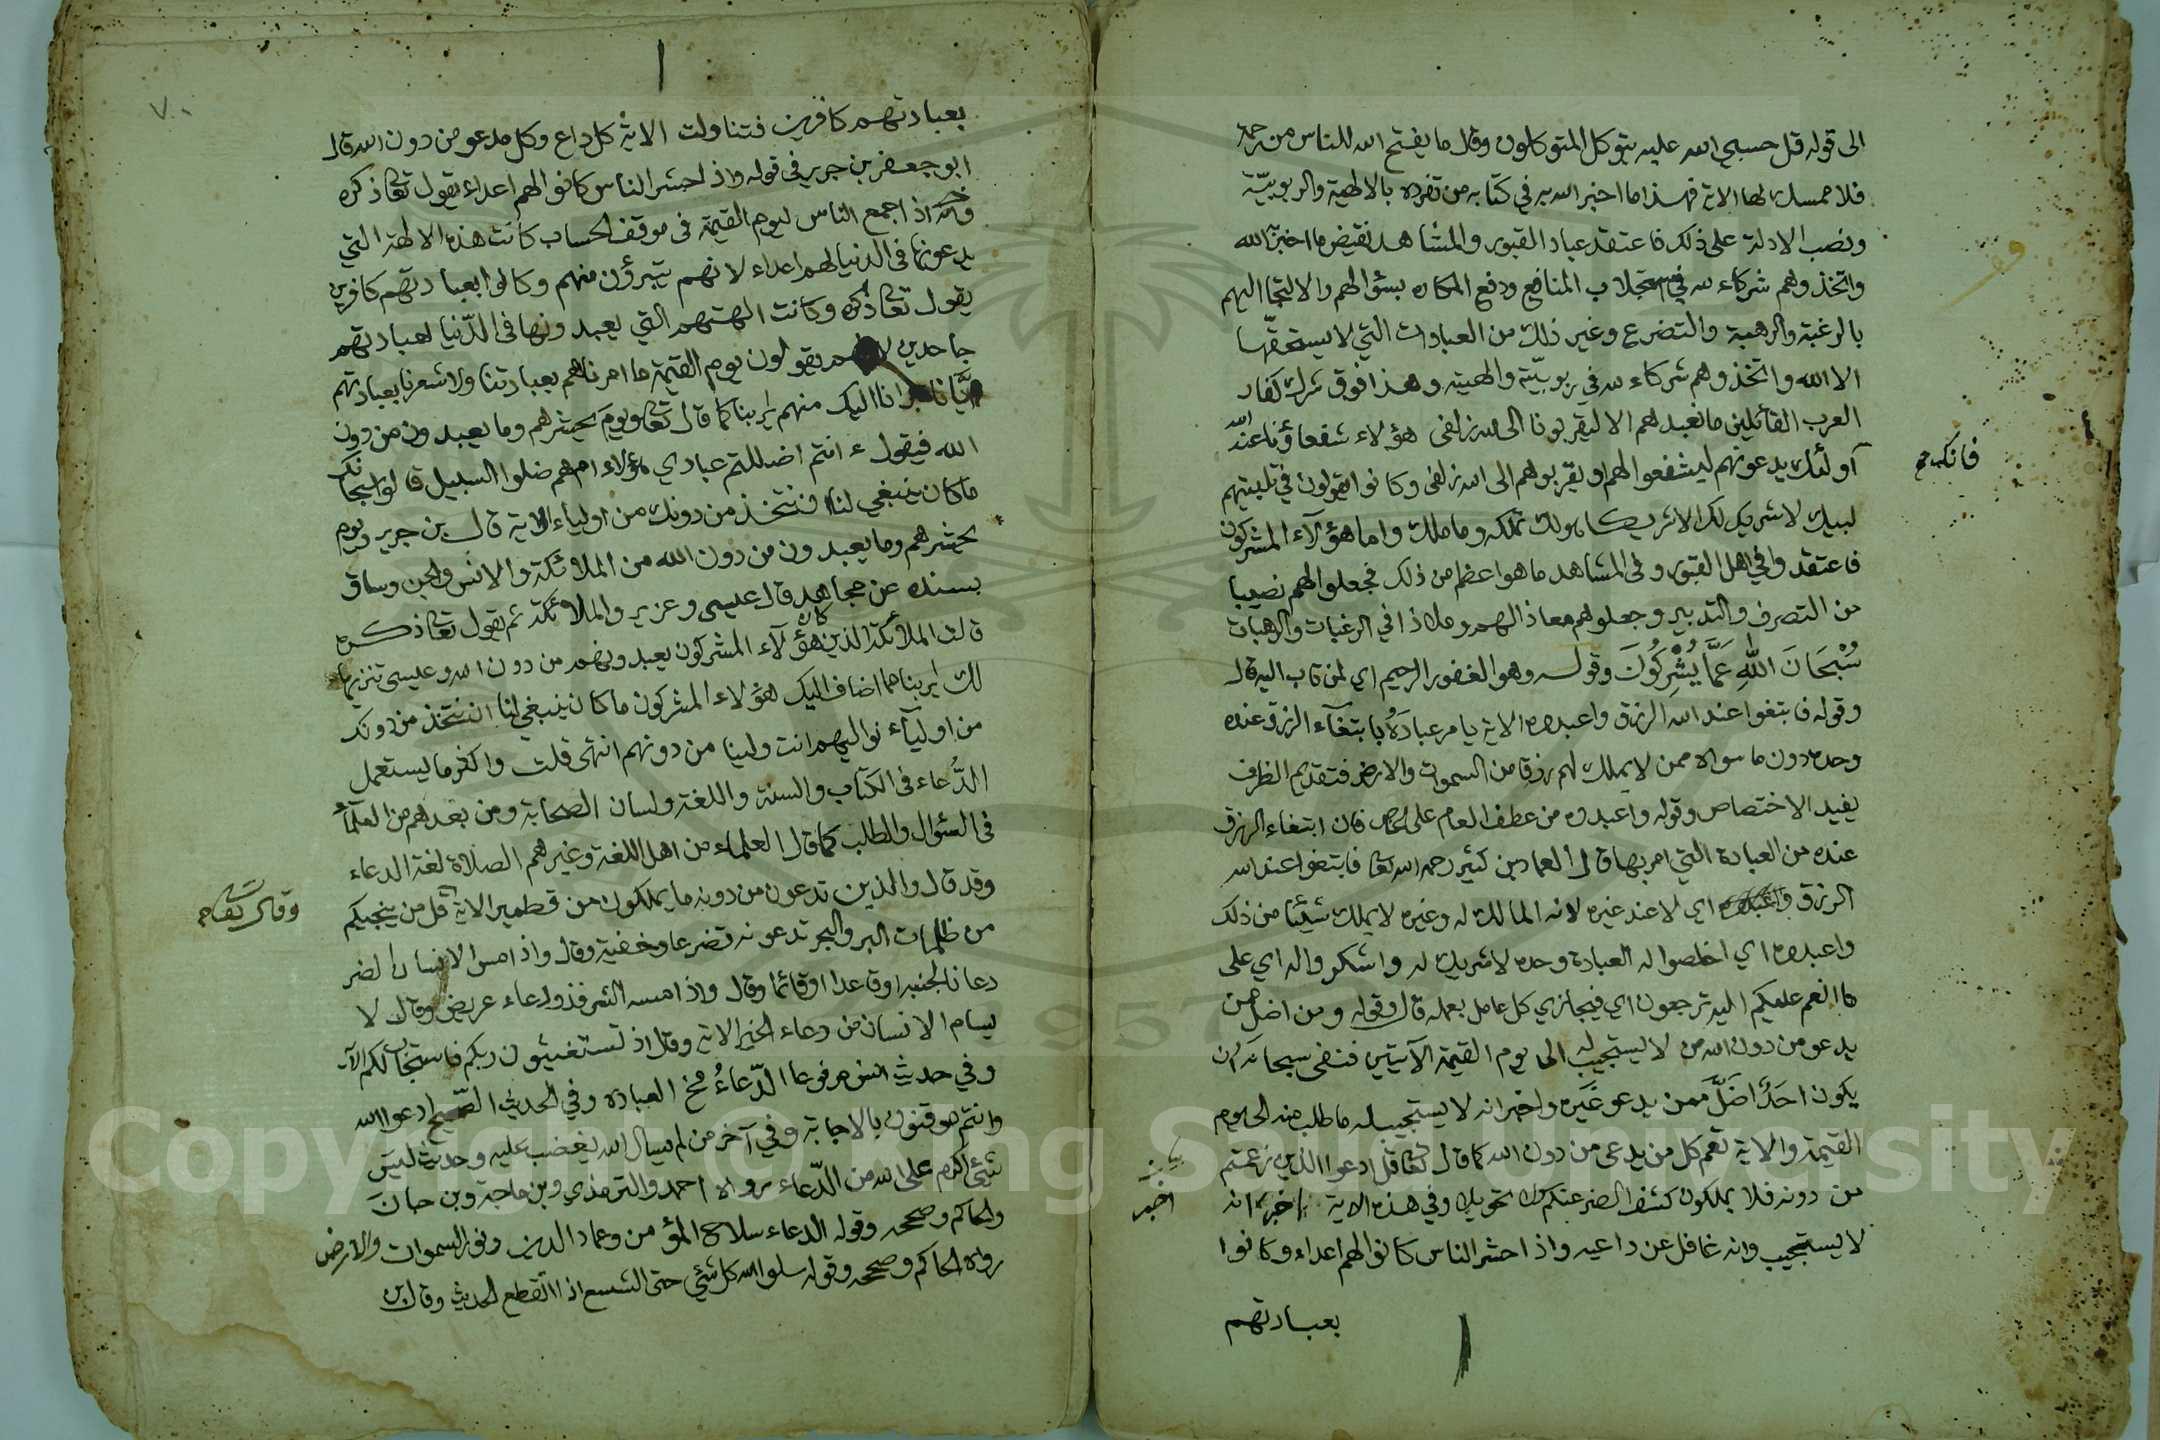 الى قوله قل حسبي الله عليه يتوكل المتوكلون وقال ما يفتح الله للناس من رحمة
فلا ممسك لها الاية فهذا ما اخبر الله به في كتابه من تفرده بالالهية والربوبيّة
ونصب الادلة على ذلك فاعتقد عباد القبور والمشاهد نقيض ما اخبر به الله
واتخذوهم شركاء لله في استجلاب المنافع ودفع المكاره بسؤالهم والالتجا اليهم
بالرغبة والرهبة والتضرع وغير ذلك من العبادات التي لا يستحقّها
الا الله واتخذوهم شركاء لله في ربوبيّته والهيته وهذا فوق شرك كفار
العرب القائلين ما نعبدهم الا ليقربونا الى الله زلفى هؤلاء شفعاؤنا عند الله
فان اولئك يدعونهم ليشفعوا لهم ويقربوهم الى الله زلفى وكانوا يقولون في تلبيتهم
لبيك لا شريك لك الا شريكا هو لك تملكه وما ملك واما هؤلآء المشركون
فاعتقدوا في اهل القبور وفى المشاهد ما هو اعظم من ذلك فجعلوا لهم نصيبا
من التصرف والتدبير وجعلوهم معاذا لهم وملاذا في الرغبات والرهبات
سُبْحَانَ اللهِ عَمَّا يُشْرِكُونَ وقوله وهو الغفور الرحيم اي لمن تاب اليه قال
وقوله فابتغوا عند الله الرزق واعبدوه الاية يامر عبادَهُ بابتغآء الرزق عنده
وحده دون ما سواه ممن لا يملك لهم رزقا من السموات والارض فتقديم الظرف
يفيد الاختصاص وقوله واعبدوه من عطف العام على الخاص فان ابتغاء الرزق
عنده من العبادة التي امر بها قال العماد بن كثير رحمه الله تعا فابتغوا عند الله
الرزق اي لا عند غيره لانه المالك له وغيره لا يملك شيئا من ذلك
واعبدوه اي اخلصوا له العبادة وحده لا شريك له واشكروا له اي على
ما انعم عليكم اليه ترجعون اي فيجازي كل عامل بعمله قال وقوله ومن اضل ممن
يدعو من دون الله من لا يستجيب له الى يوم القيمة الآيتين فنفى سبحانه ان
يكون احَدٌ اضَلَّ ممن يدعو غَيره واخبر انه لا يستجيب له ما طلب منه الى يوم
القيمة والاية تعم كل من يدعى من دون الله كما قال تعا قل ادعوا الذين زعمتم
من دونه فلا يملكون كشف الضر عنكم ولا تحويلا وفي هذه الاية اخبر انه
اخبر
لا يستجيب وانه غافل عن داعيه واذا حشر الناس كانوا لهم اعداء وكانوا
بعبادتهم
٧٠
بعبادتهم كافرين فتناولت الاية كل داع وكل مدعو من دون الله قال
ابو جعفر بن جرير في قوله واذا حشر الناس كانوا لهم اعداء يقول تعا ذكره
واذا جمع الناس ليوم القيمة فى موقف الحساب كانت هذه الالهة التي
يدعونها فى الدنيا لهم اعداء لانهم يتبرؤن منهم وكانوا بعبادتهم كافرين
يقول تعا ذكره وكانت الهتهم التي يعبدونها فى الدّنيا لعبادتهم
جاحدين لانهم يقولون يوم القيمة ما امرناهم بعبادتنا ولا شعرنا بعبادتهم
ايَّانا تبرانا اليك منهم يا ربنا كما قال تعا ويوم يحشرهم وما يعبدون من دون
الله فيقول ءانتم اضللتم عبادي هؤلاء ام هم ضلوا السبيل قالوا سبحانك
ما كان ينبغي لنا ان نتخذ من دونك من اولياء الاية قال بن جرير ويوم
يحشرهم وما يعبدون من دون الله من الملائكة والانس والجن وساق
بسنده عن مجاهد قال عيسى وعزير والملائكة ثم يقول تعا ذكره
قالت الملائكة الذين كان هؤلآء المشركون يعبدونهم من دون الله وعيسى تنزيها
لك يا ربنا مما اضاف اليك هؤلاء المشركون ما كان ينبغي لنا ان نتخذ من دونك
من اوليآء نواليهم انت ولينا من دونهم انتهى قلت واكثر ما يستعمل
الدُّعاء فى الكتاب والسنة واللغة ولسان الصحابة ومن بعدهم من العلمآء
فى السؤال والطلب كما قال العلماء من اهل اللغة وغيرهم الصلاة لغة الدعاء
وقد قال والذين تدعون من دونه ما يملكون من قطمير الاية قل من ينجيكم
وقال تعا
من ظلمات البر والبحر تدعونه تضرعا وخفية وقال واذا مس الانسان الضر
دعانا لجنبه او قاعدا او قائما وقال واذا مسه الشر فذو دعاء عريض وقال لا
يسام الانسان من دعاء الخير الاية وقال اذ تستغيثون ربكم فاستجاب لكم الآية
وفي حديث انس مرفوعا الدّعاءُ مخ العباده وفي الحديث الصّحيح ادعوا الله
وانتم موقنون بالاجابة وفي آخر من لم يسال الله يغضب عليه وحديث ليس
شيئ اكرم على الله من الدّعاء رواه احمد والترمذي وبن ماجة وبن حبان
والحاكم وصححه وقوله الدعاء سلاح المؤمن وعماد الدين ونور السموات والارض
رواه الحاكم وصححه وقوله سلوا الله كل شيئ حتى الشسع اذا انقطع الحديث وقال بن
Copyright © King Saud University
1957